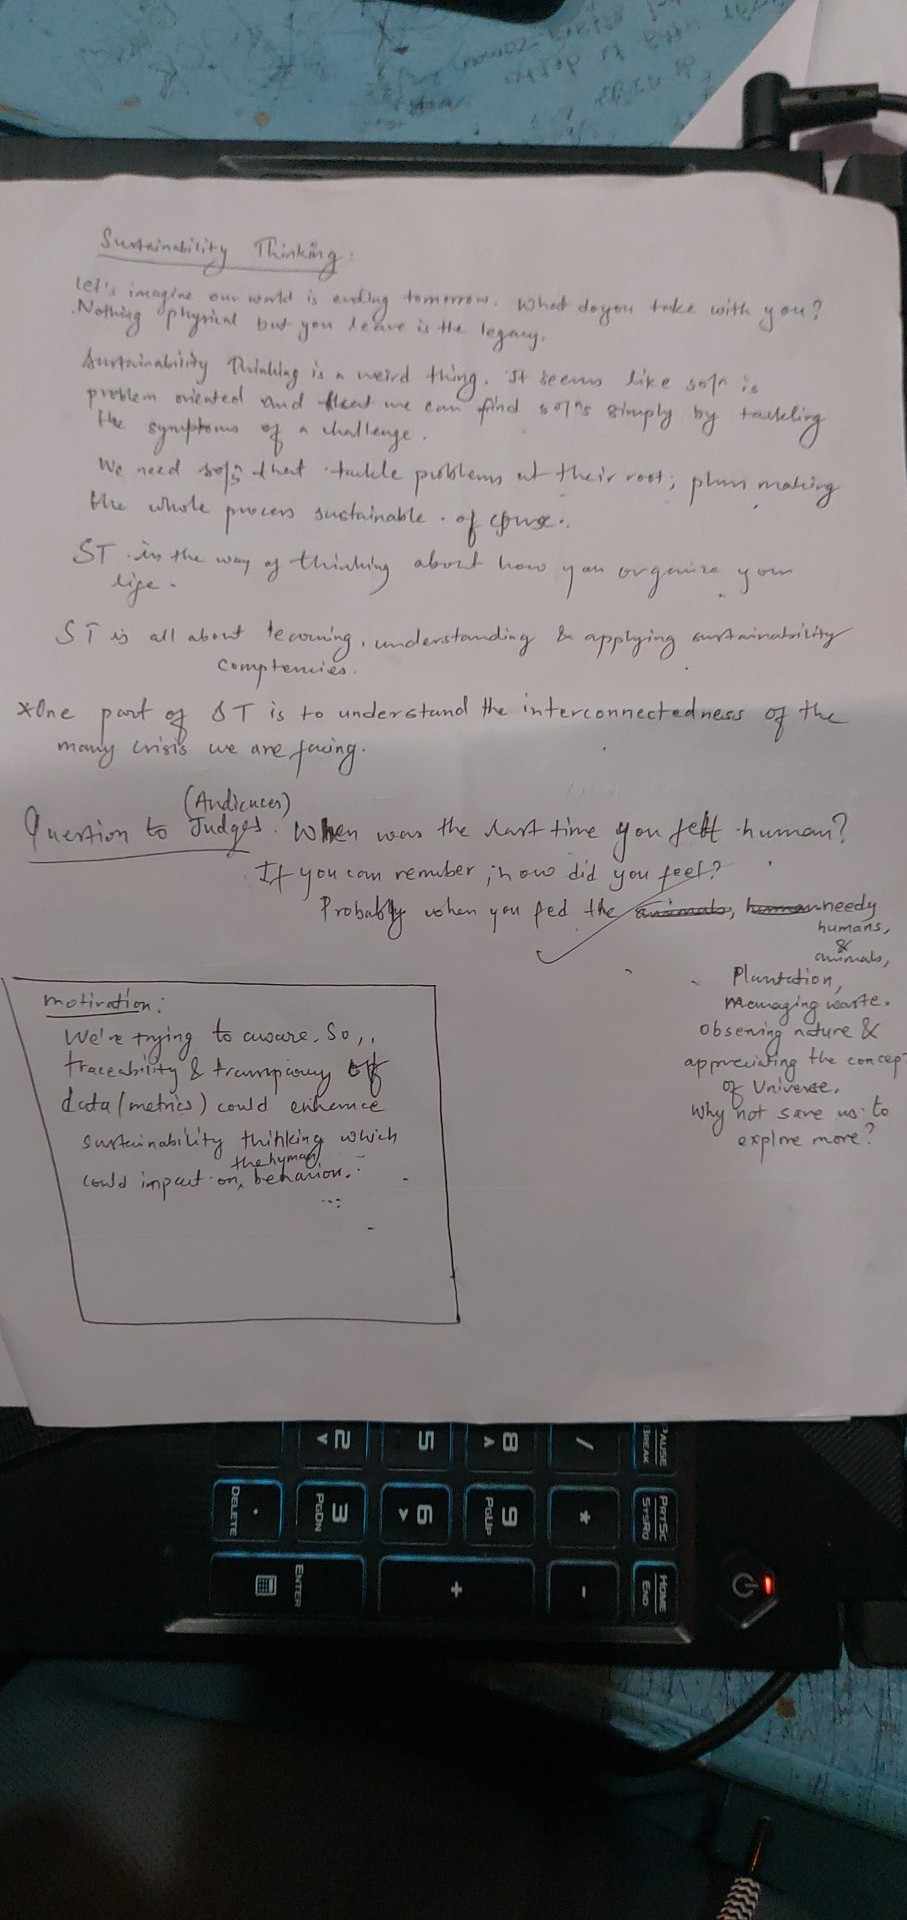 Sustainability Thinking:
Let's imagine our world is ending tomorrow. What do you take with you?
Nothing physical but you leave is the legacy.
Sustainability Thinking is a weird thing. It seems like soln is
problem oriented and that we can find solns simply by tackling
the symptoms of a challenge.
We need solns that tackle problems at their root; plus making
the whole process sustainable. of course.
ST is the way of thinking about how you organize your
life.
ST is all about learning, understanding & applying sustainability
comptencies.
*One part of ST is to understand the interconnectedness of the
many crisis we are facing.
(Audiences)
Question to Judges. When was the last time you felt human?
If you can remember; how did you feel?
Probably when you fed the animals, human needy
humans,
&
animals,
Plantation,
Managing waste.
Observing nature &
appreciating the concept
of Universe.
Why not save us to
explore more?
motivation:
We're trying to aware. So,,
traceability & of
data (metrics) could enhance
sustainability thinking which
the human
could impact on behavior.
PAUSE
BREAK
PRTSC
SYSRQ
HOME
END
/
*
-
8
9
PGUP
+
5
6
2
3
PGDN
ENTER
.
DELETE